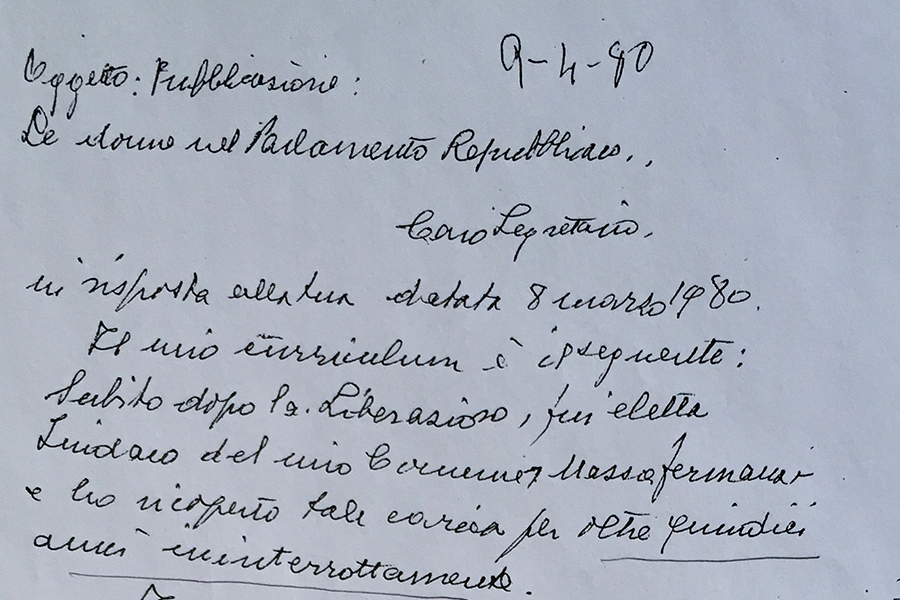 9-4-80
Oggetto: Pubblicazione:
Le donne nel Parlamento Repubblicano..
Caro Segretario,
in risposta alla tua datata 8 marzo 1980.
Il mio curriculum è il seguente:
Subito dopo la Liberazione, fui eletta
Sindaco del mio Comune, Massafermana-
e ho ricoperto tale carica per oltre quindici
anni ininterrottamente.